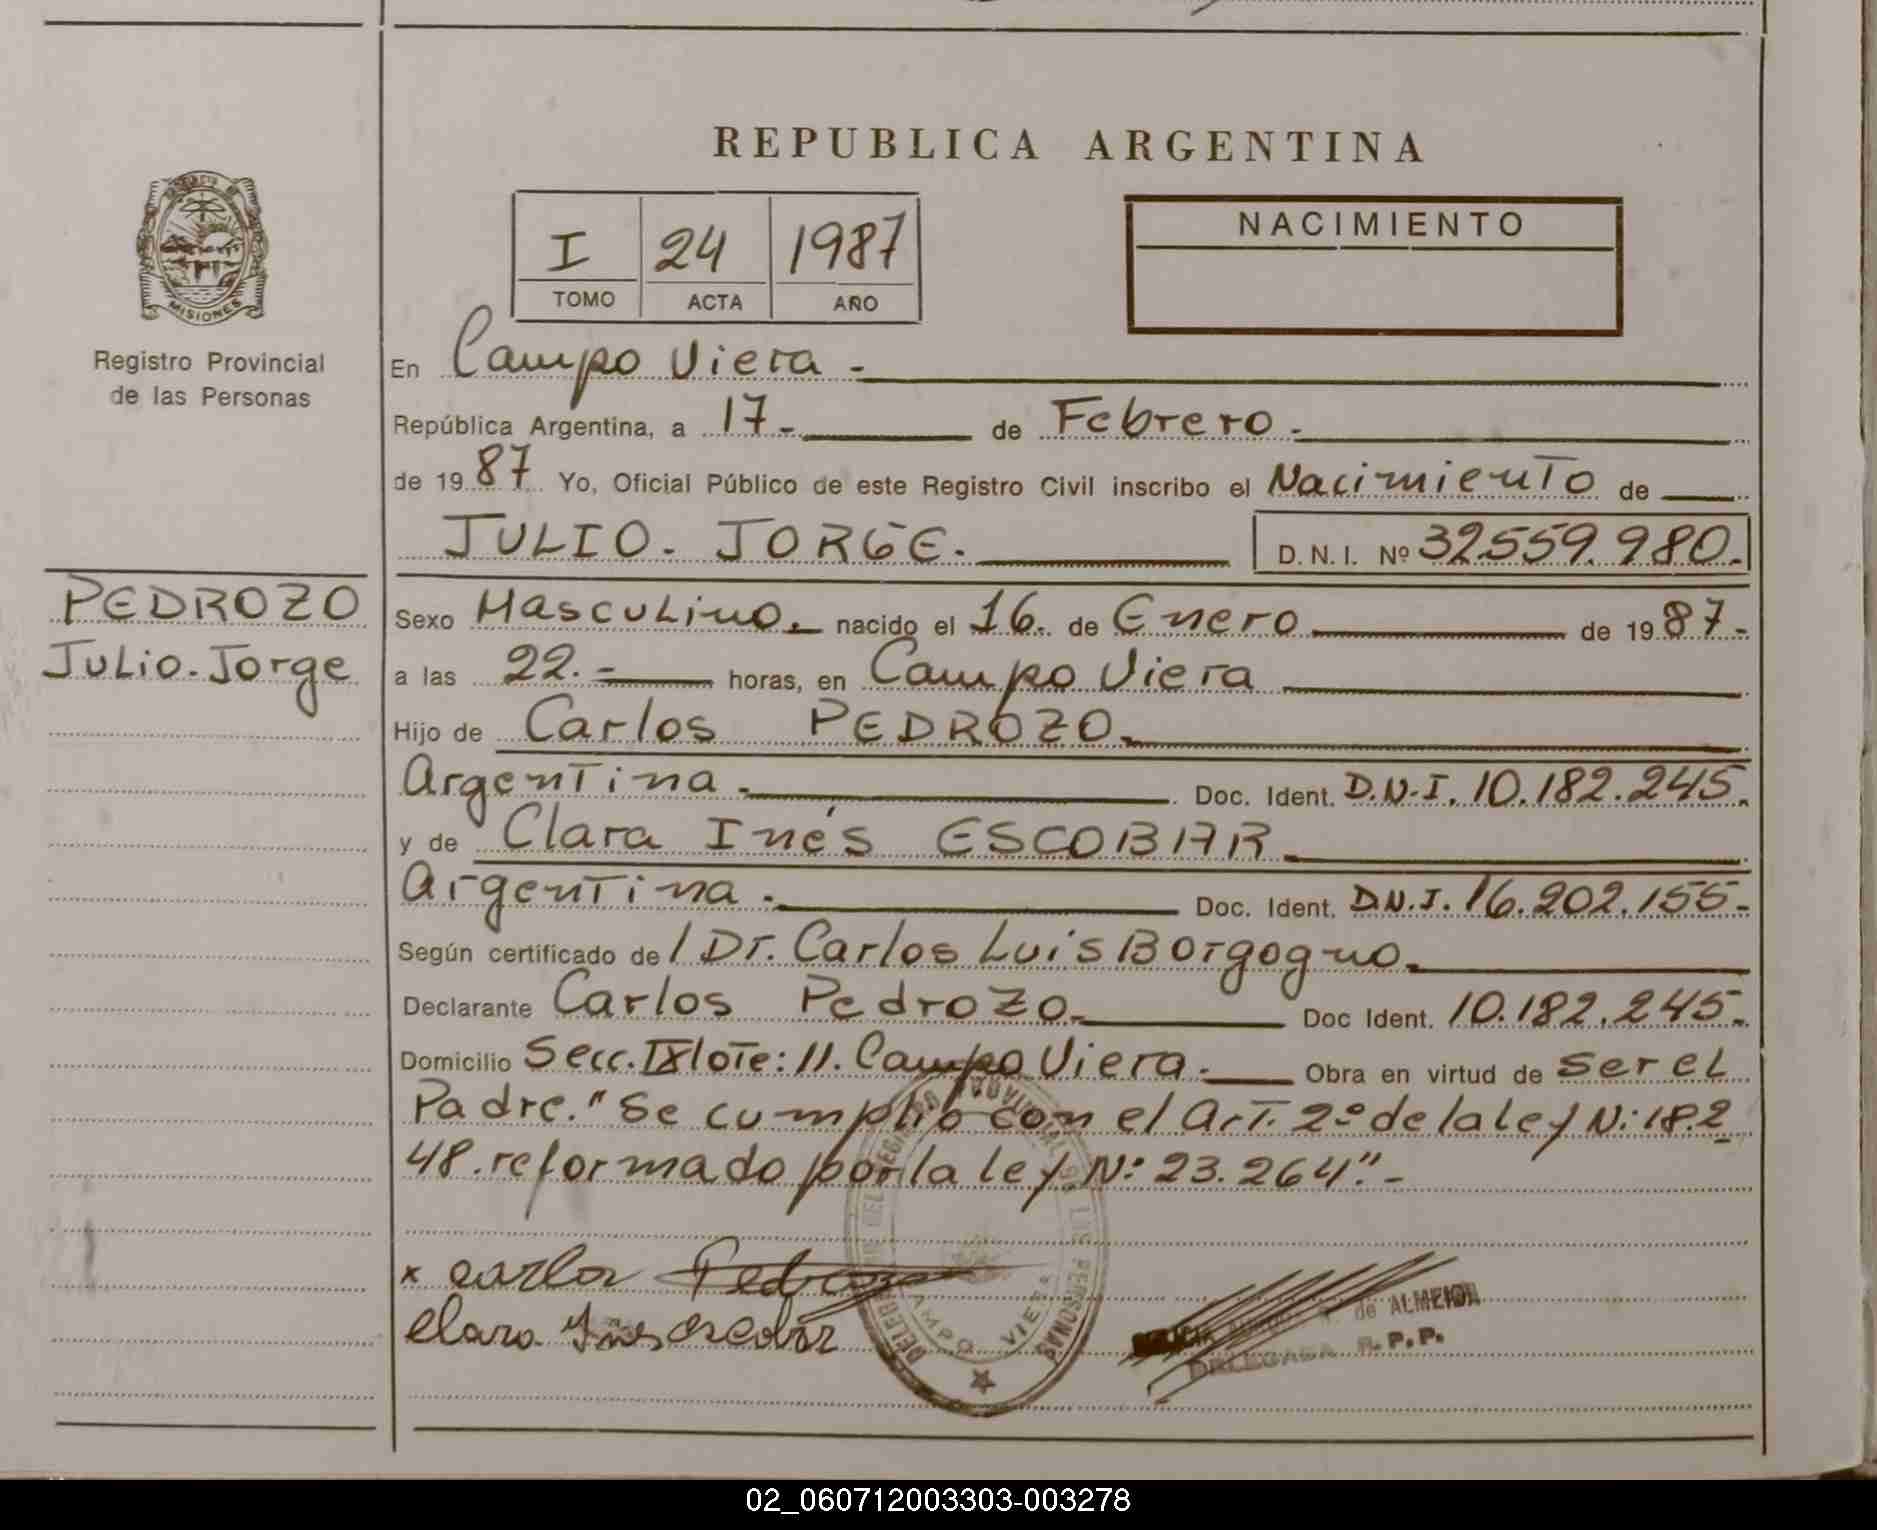 REPUBLICA ARGENTINA
I 24 1987
TOMO ACTA AÑO
NACIMIENTO
MISIONES
Registro Provincial
de las Personas
En Campo Viera.-
República Argentina, a 17.- de Febrero.-
de 19 87 Yo, Oficial Público de este Registro Civil inscribo el Nacimiento de
JULIO. JORGE.- D. N. I. Nº 32559.980.
PEDROZO
Julio. Jorge
Sexo Masculino.- nacido el 16. de Enero de 19 87-
a las 22.- horas, en Campo Viera
Hijo de Carlos PEDROZO.
Argentina.- Doc. Ident. D.N.I. 10.182.245.
y de Clara Inés ESCOBAR.
Argentina.- Doc. Ident. D.N.I. 16.202.155-
Según certificado de / Dr. Carlos Luis Borgogno.
Declarante Carlos Pedrozo. Doc Ident. 10.182.245-
Domicilio Secc. IX lote: 11. Campo Viera.- Obra en virtud de ser el
Padre. "Se cumplió con el Art. 2º de la ley N: 18.2
48. reformado por la ley Nº 23.264".-
x carlos Pedrozo
clara Ines escobar
CAMPO VIERA
de ALMEIDA
DELEGADA R.P.P.
02_060712003303-003278